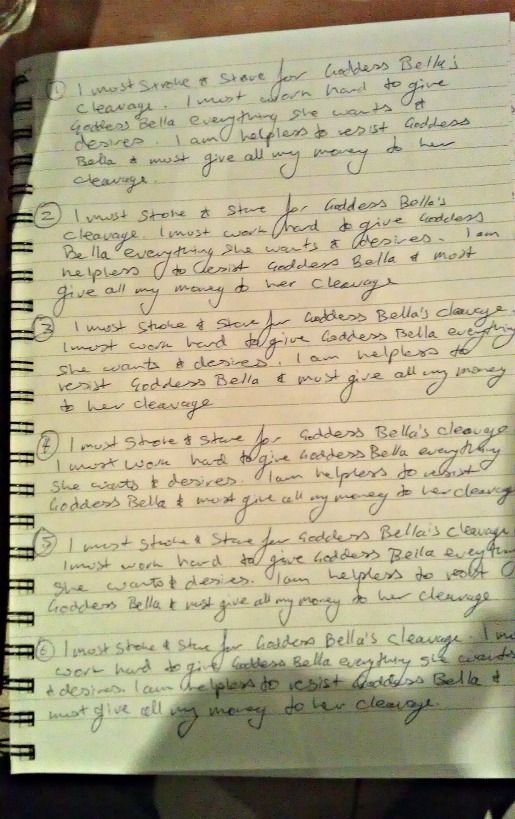 ① I must Stroke & Stare for Goddess Bella's
Cleavage. I must work hard to give
Goddess Bella everything she wants &
desires. I am helpless to resist Goddess
Bella & must give all my money to her
cleavage.
② I must Stroke & Stare for Goddess Bella's
Cleavage. I must work hard to give Goddess
Bella everything she wants & desires. I am
helpless to resist Goddess Bella & must
give all my money to her Cleavage
③ I must Stroke & Stare for Goddess Bella's cleavage.
I must work hard to give Goddess Bella everything
she wants & desires. I am helpless to
resist Goddess Bella & must give all my money
to her cleavage
④ I must Stroke & Stare for Goddess Bella's cleavage
I must work hard to give Goddess Bella everything
she wants & desires. I am helpless to resist
Goddess Bella & must give all my money to her cleavag
⑤ I must Stroke & Stare for Goddess Bella's Cleavage
I must work hard to give Goddess Bella everything
she wants & desires. I am helpless to resist
Goddess Bella & must give all my money to her cleavage
⑥ I must Stroke & Stare for Goddess Bella's Cleavage. I mu
work hard to give Goddess Bella everything she wants
& desires. I am helpless to resist Goddess Bella &
must give all my money to her cleavage.